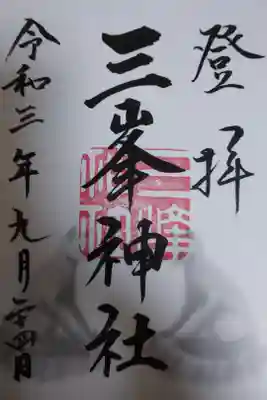 登拝
三峯神社
令和三年九月二十四日